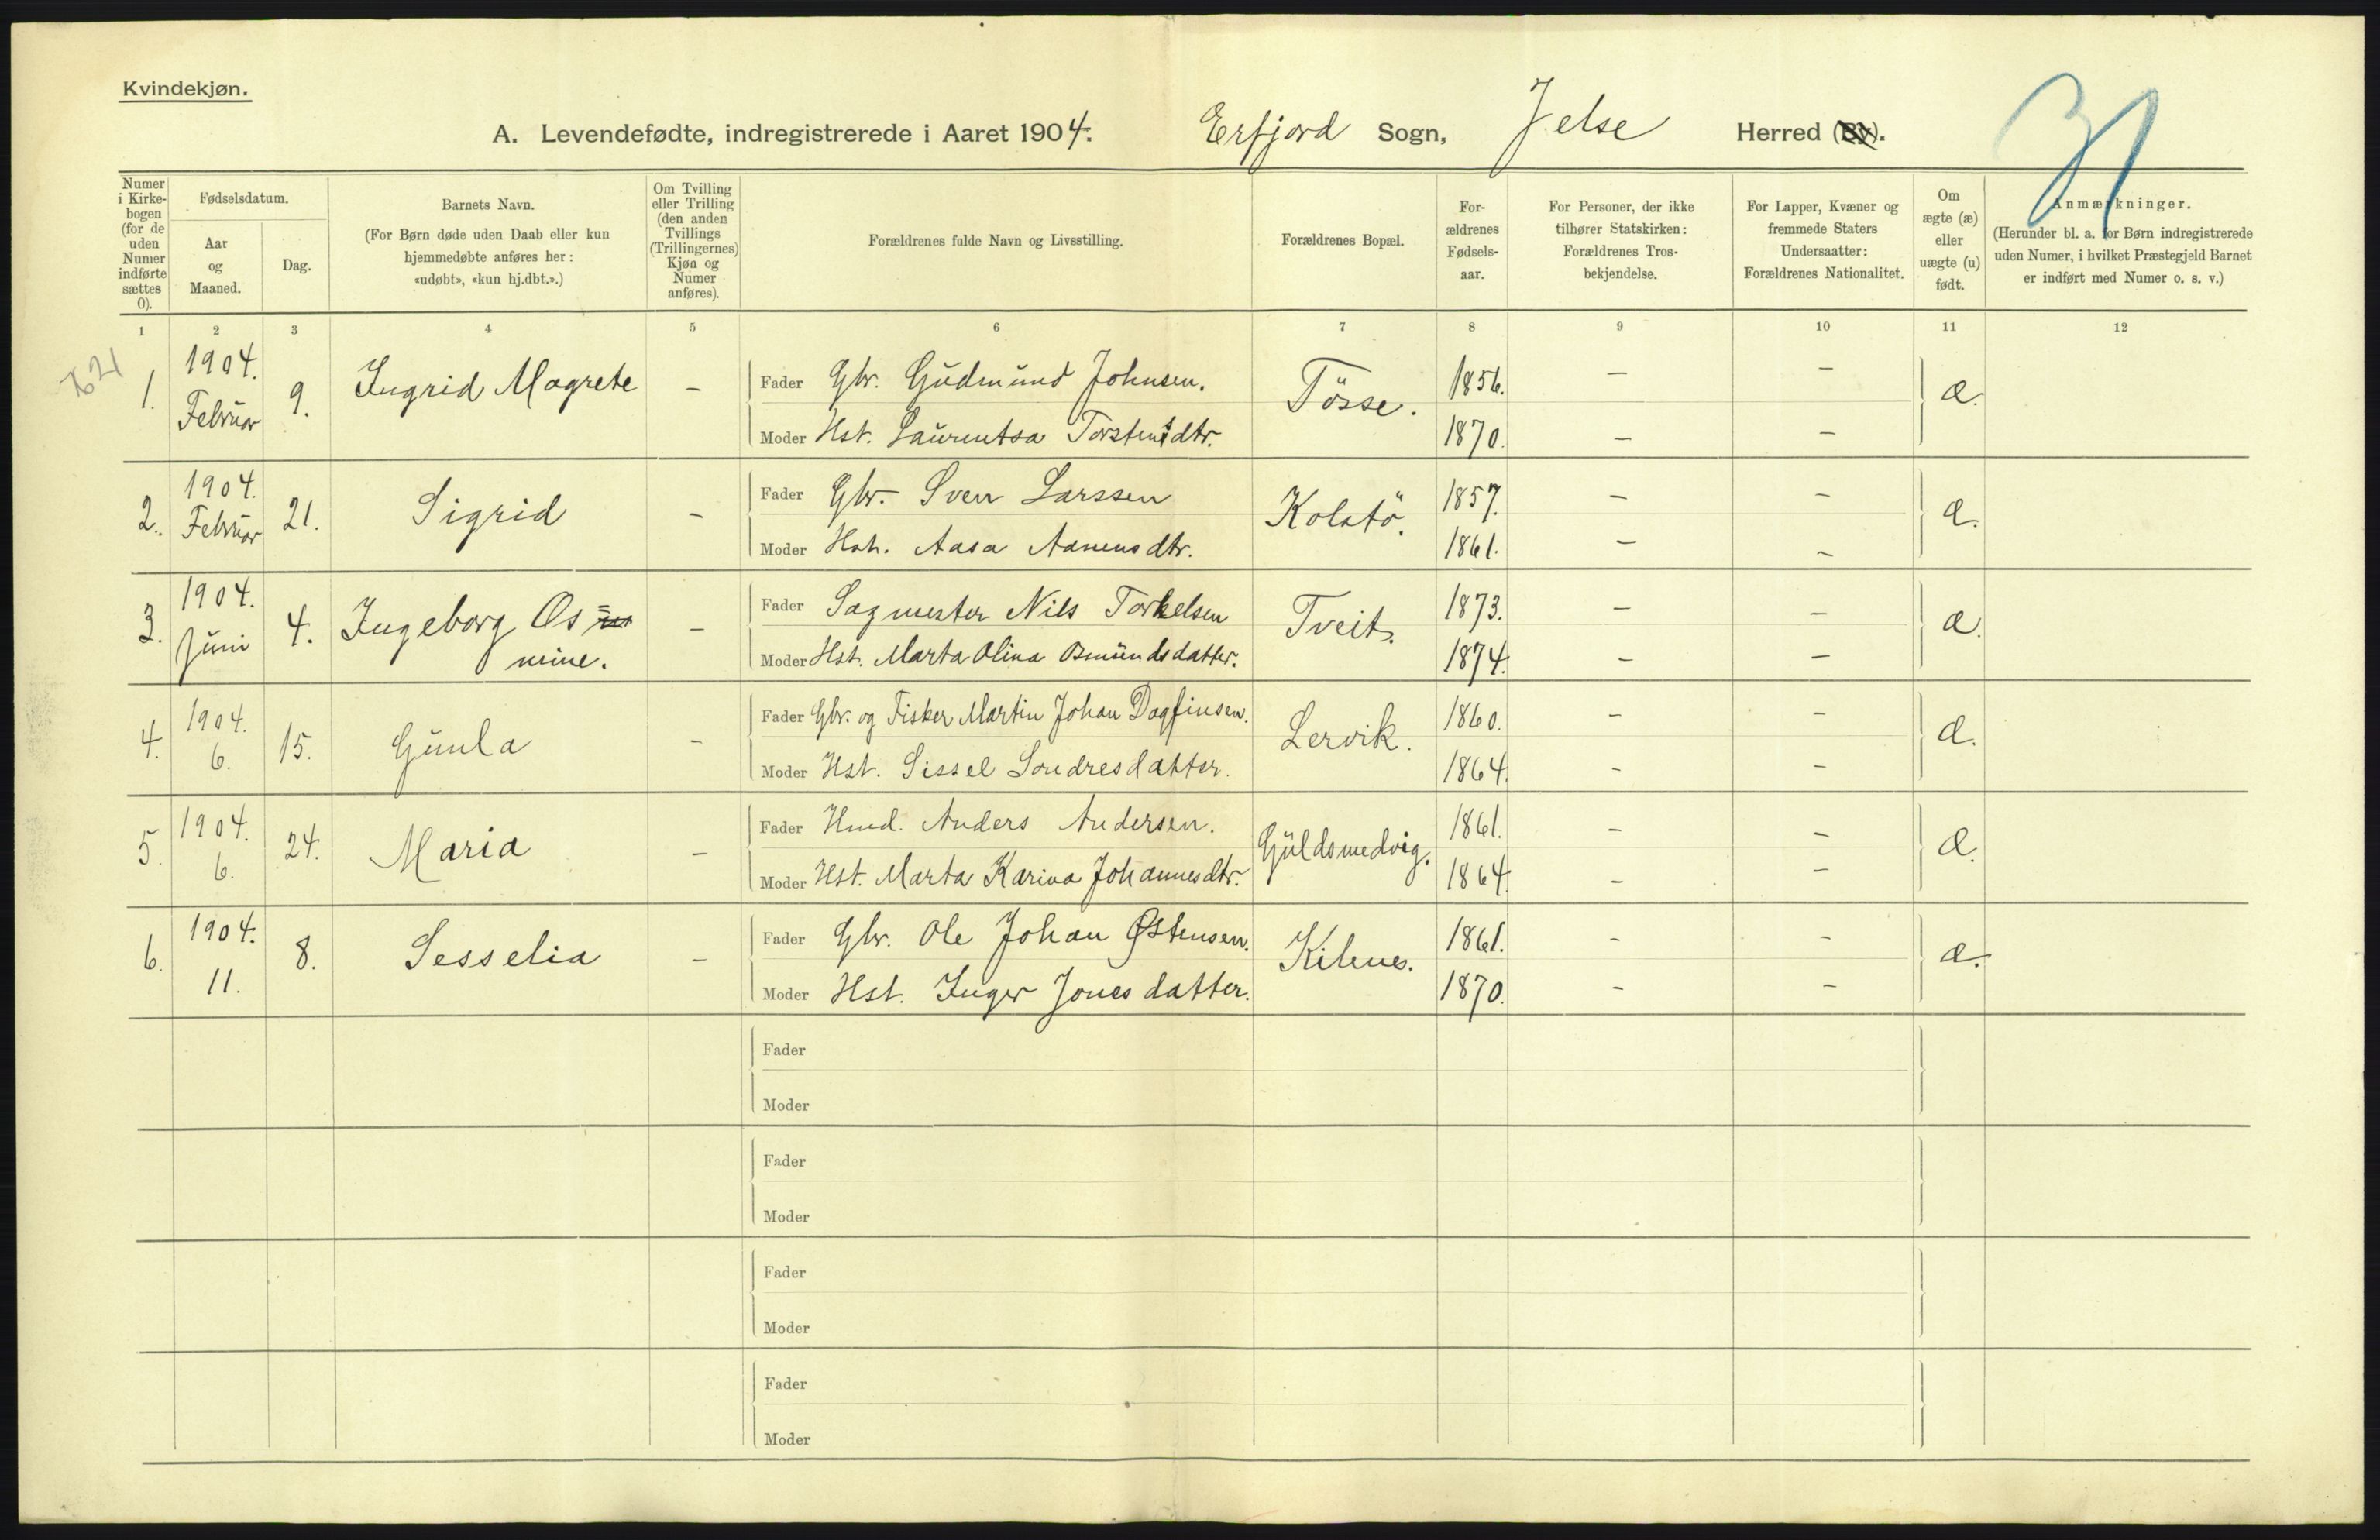 Kvindekjøn.
A. Levendefødte, indregistrerede i Aaret 1904. Erfjord Sogn, Jelse Herred (By).
31
Numer i Kirkebogen (for de uden Numer indførte sættes 0).
Fødselsdatum.
Aar og Maaned.
Dag.
Barnets Navn.
(For Børn døde uden Daab eller kun hjemmedøbte anføres her: «udøbt», «kun hj.dbt.».)
Om Tvilling eller Trilling (den anden Tvillings (Trillingernes) Kjøn og Numer anføres).
Forældrenes fulde Navn og Livsstilling.
Forældrenes Bopæl.
Forældrenes Fødselsaar.
For Personer, der ikke tilhører Statskirken: Forældrenes Trosbekjendelse.
For Lapper, Kvæner og fremmede Staters Undersaatter: Forældrenes Nationalitet.
Om ægte (æ) eller uægte (u) født.
Anmærkninger.
(Herunder bl. a. for Børn indregistrerede uden Numer, i hvilket Præstegjeld Barnet er indført med Numer o. s. v.)
1 2 3 4 5 6 7 8 9 10 11 12
1. 1904. Februar 9. Ingrid Magrete - Fader Gbr. Gudmund Johnsen. Tösse. 1856. - - æ.
Moder Hst. Laurentsa Torstensdtr. 1870. - -
2. 1904. Februar 21. Sigrid - Fader Gbr. Sven Larssen Kolstö. 1857. - - æ.
Moder Hst. Aasa Aanensdtr. 1861. - -
3. 1904. Juni 4. Ingeborg Os - Fader Sagmester Nils Torkelsen Tveit. 1873. - - æ.
mine. Moder Hst. Marta Olina Osmundsdatter. 1874. - -
4. 1904. 6. 15. Gunla - Fader Gbr. og Fisker Martin Johan Dagfinsen. Lervik. 1860. - - æ.
Moder Hst. Sissel Sondresdatter. 1864. - -
5. 1904. 6. 24. Maria - Fader Hmd. Anders Andersen. Guldsmedvig. 1861. - - æ.
Moder Hst. Marta Karina Johannesdtr. 1864. - -
6. 1904. 11. 8. Sesselia - Fader Gbr. Ole Johan Østensen. Kilenes. 1861. - - æ.
Moder Hst. Inger Jonesdatter. 1870. - -
Fader
Moder
Fader
Moder
Fader
Moder
Fader
Moder